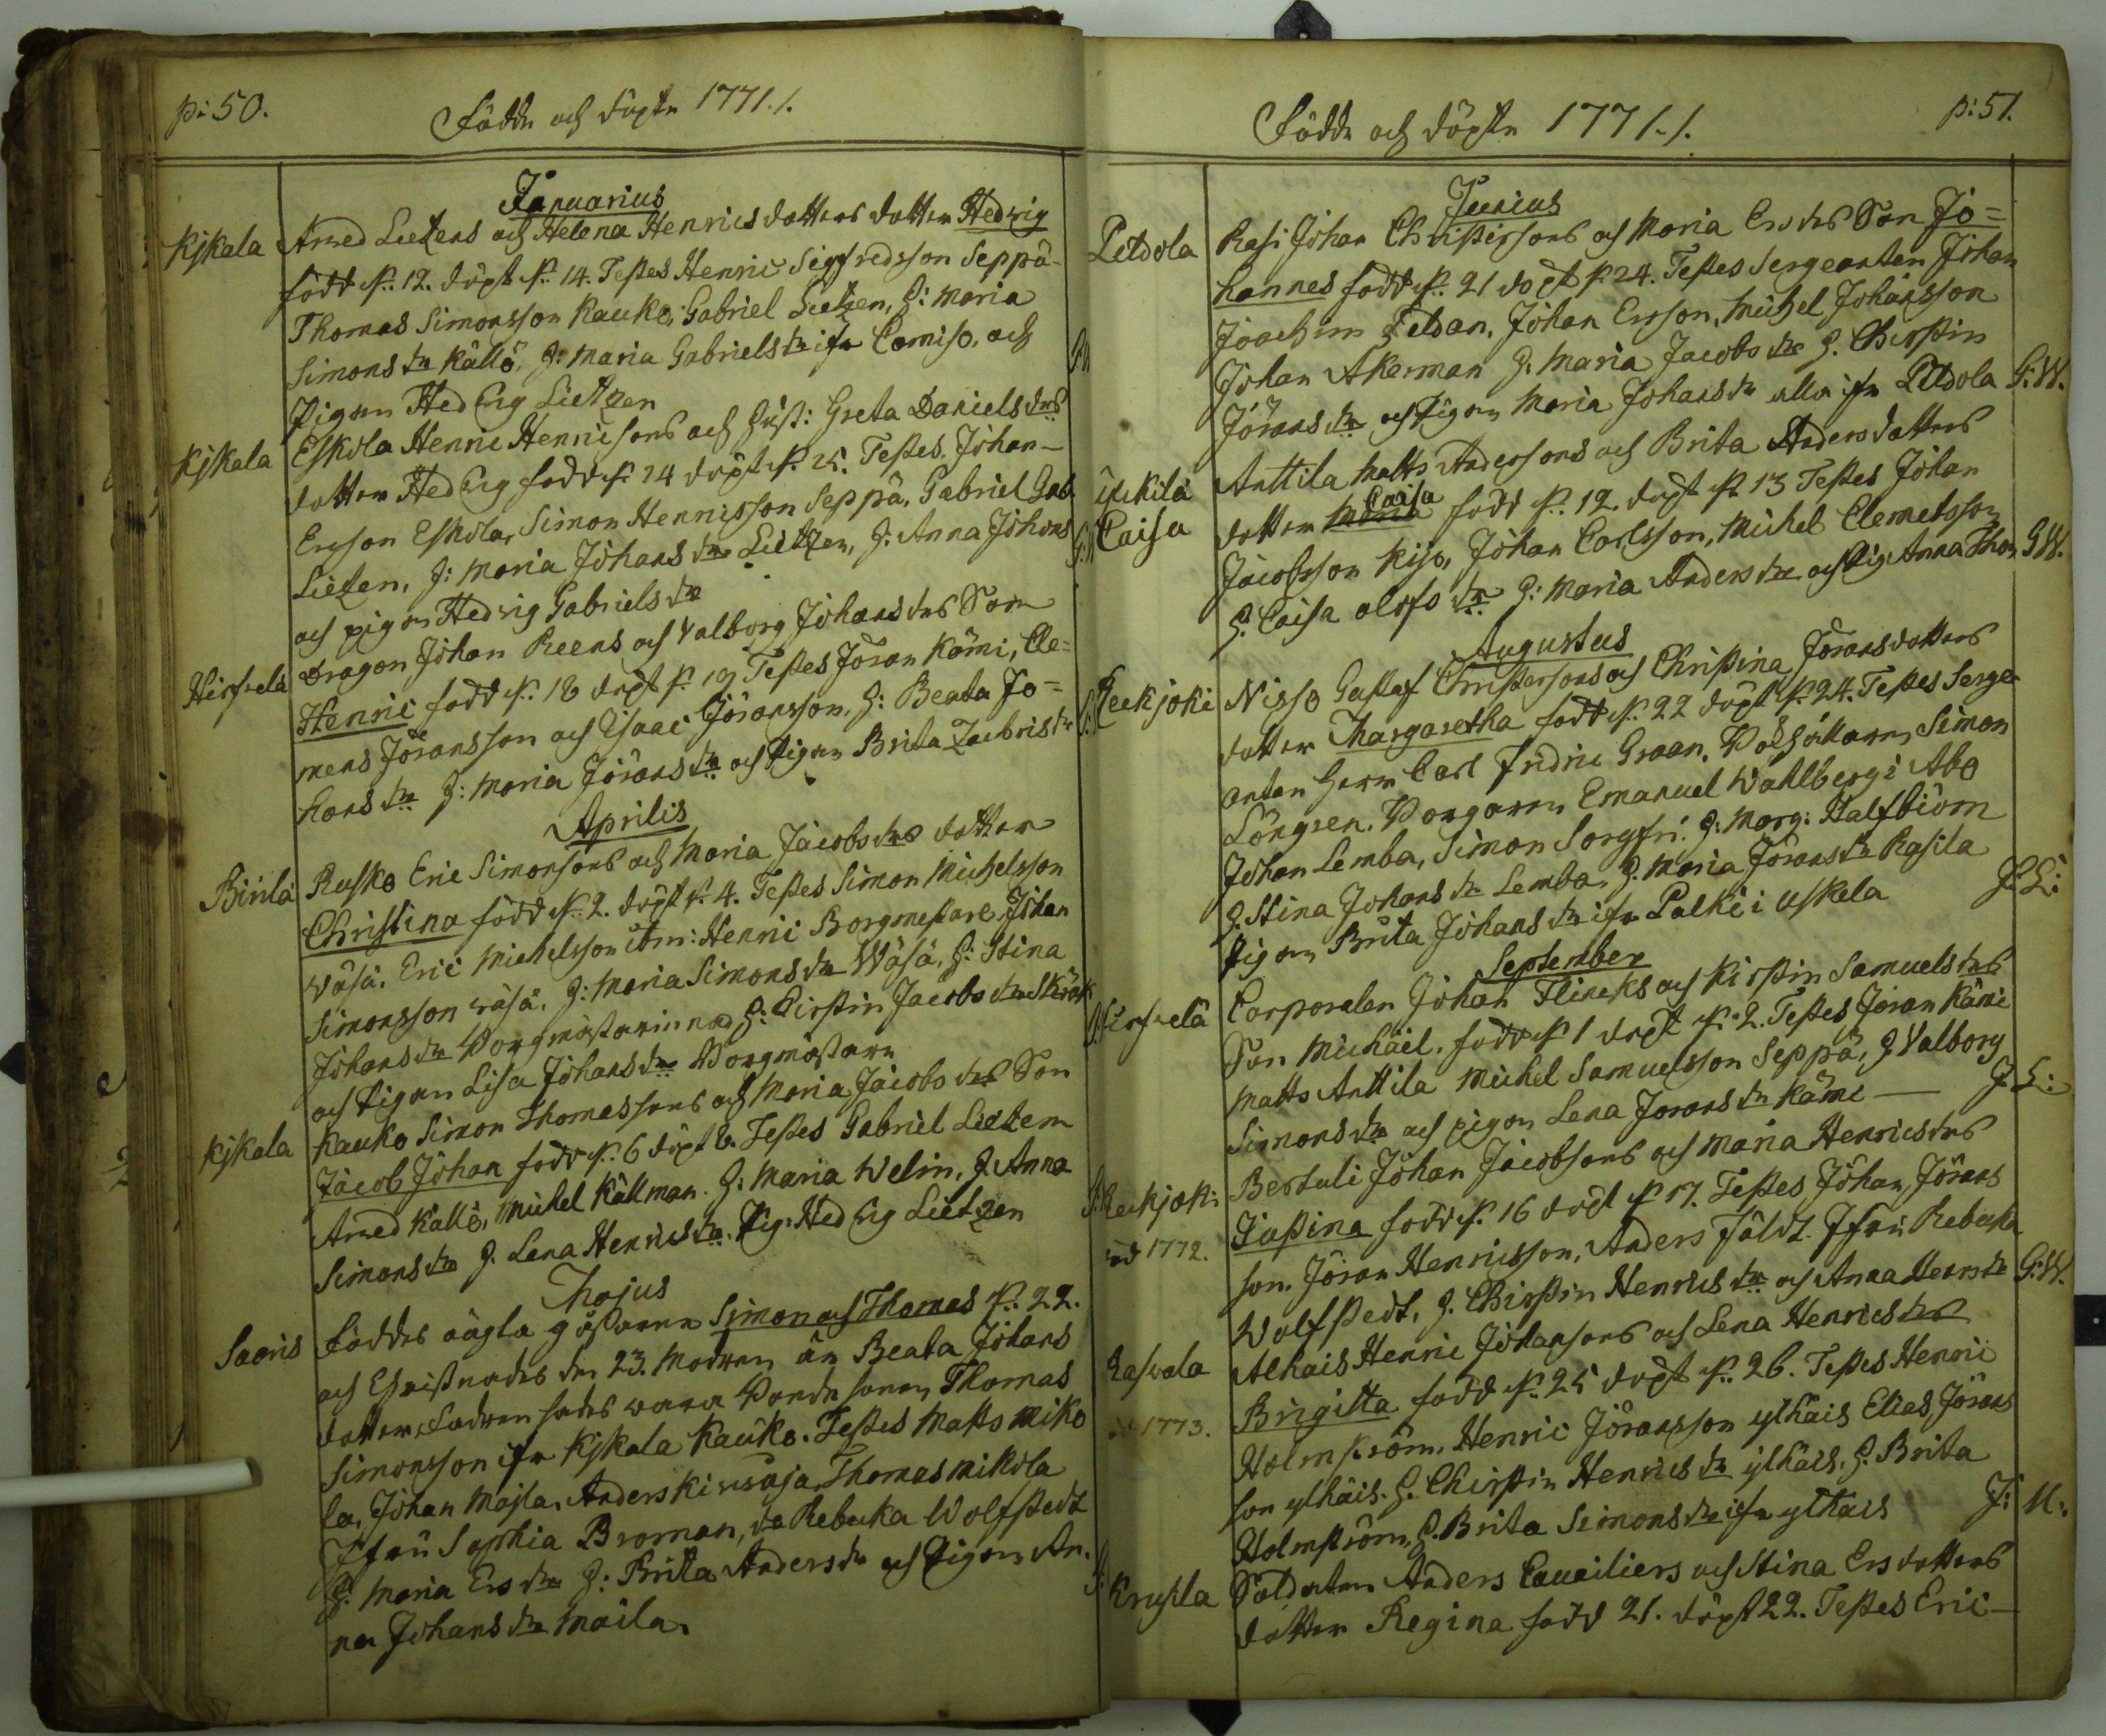 p: 50.
Födde och döpte 1771./.
Januarius
Kjkala Arved Lietzens och Helena Henricsdotters dotter Hedvig
född d. 12. döpt d. 14. Testes Henric Sigfredsson Seppä
Thomas Simonsson Kauko, Gabriel Lietzen, H: Maria
Simons dr Källö, H: Maria Gabriels dr ifr Comiso, och
Pigan Hedvig Lietzen
Kjkala Eskola Henric Henricsons och Hust: Greta Daniels drs
dotter Hedvig född d. 24 döpt d. 25. Testes. Johan
Ersson Eskola, Simon Henricsson Seppä, Gabriel Gab
Lietzen, H: Maria Johans dr Lietzen, H: Anna Johans
och pigan Hedvig Gabriels dr
Hirfvelä Dragon Johan Reens och Valborg Johans drs Son
Henric född d. 18 döpt d. 19 Testes Jöran Kämi, Cle=
mens Jöransson och Isaac Jöransson, H: Beata Jo=
hans dr H: Maria Jörans dr och Pigan Brita Zachris dr
Aprilis
Rusko Eric Simonsons och Maria Jacobs drs dotter
Christina född d. 2. döpt d. 4. Testes Simon Michelsson
Väsä, Eric Michelsson itm: Henric Borgmestare Johan
Simonsson väsä, H: Maria Simons dr Wäsä, H: Stina
Johans dr Borgmästarinna H: Cirstin Jacobs dr
och Pigan Lisa Johans dr Borgmästare
Kjkala Kauko Simon Thomassons och Maria Jacobs drs Son
Jacob Johan född d. 6 döpt 8. Testes Gabriel Lietzen
Arved Källö, Michel Källman. H: Maria Welin, H. Anna
Simons dr H. Lena Henrics dr. Pig: Hedvig Lietzen
Majus
Saaris Föddes oägta gåssarne Simon och Thomas d. 22.
och Christnades den 23. Modren är Beata Johans
dotter, Fadren sades vara Bondesonen Thomas
Simonsson ifr Kjkala Kauko. Testes Matts Miko
la, Johan Majla, Anders Kirvoja, Thomas Mikola
Jfru Sophia Broman, do Rebecka Wolfstedt
H: Maria Ers dr H: Brita Anders dr och Pigan An-
na Johans dr Maila.
Födde och döpte 1771./.
p: 51.
Junius
Peldola Rasi Johan Christersons och Maria Ers drs Son Jo=
hannes född d. 21 döpt d. 24. Testes Sergeanten Johan
Joachim Feldan, Johan Ersson, Michel Johansson
Johan Åkerman H. Maria Jacobs dr H. Chirstin
Jörans dr och Pigan Maria Johans dr alla ifr Peldola G: W.
Anttila Matts Andersons och Brita Andersdotters
dotter Maria Caisa född d. 12. döpt d. 13 Testes Johan
Caisa
Jacobsson Kiso, Johan Carlsson, Michel Clemetsson
H. Caisa Olofs dr H: Maria Anders dr och Pig: Anna Thom G W.
Augustus
Reckjoki Nisso Gustaf Christersons och Christina Jöransdotters
dotter Margaretha född d. 22 döpt d. 24. Testes Serge
anten Herr Carl Fridric Graan, Simon
Löngren, Borgaren Emanuel Wahlberg i Åbo
Johan Lemba, Simon Sorgfri. H: Marg: Halfbiörn
H. Stina Johans dr Lemba, H. Maria Jörans dr Rasila
Pigan Brita Johans dr ifr Palki i Uskela J: L:
September
Hirfvelä Corporalen Johan Flincks och Kirstin Samuels drs
Son Michäel, född d. 1 döpt d. 2. Testes Jöran Kämi
Matts Anttila Michel Samuelsson Seppä, H Valborg
Simons dr och pigan Lena Jorans dr Kämi — J: L:
Reckjoki Bertuli Johan Jacobsons och Maria Henrics drs
Justina född d. 16 döpt d. 17. Testes Johan Jörans
död 1772. son. Jöran Henricsson, Anders Fäldt. Jfru Rebecka
Wolfstedt, H. Chirstin Henrics dr och Anna Henr dr G: W.
Alhais Henric Johansons och Lena Henrics drs
Brigitta född d. 25 döpt d. 26. Testes Henric
1773. Holmström, Henric Jöransson ylhäis Elias Jörans
son ylhäis. H. Chirstin Henrics dr ylhäis, H. Brita
Holmström, H. Brita Simons dr ifr ylhäis J: U:
Krusila Soldaten Anders Cavailiers och Stina Ersdotters
dotter Regina född 21. döpt 22. Testes Eric